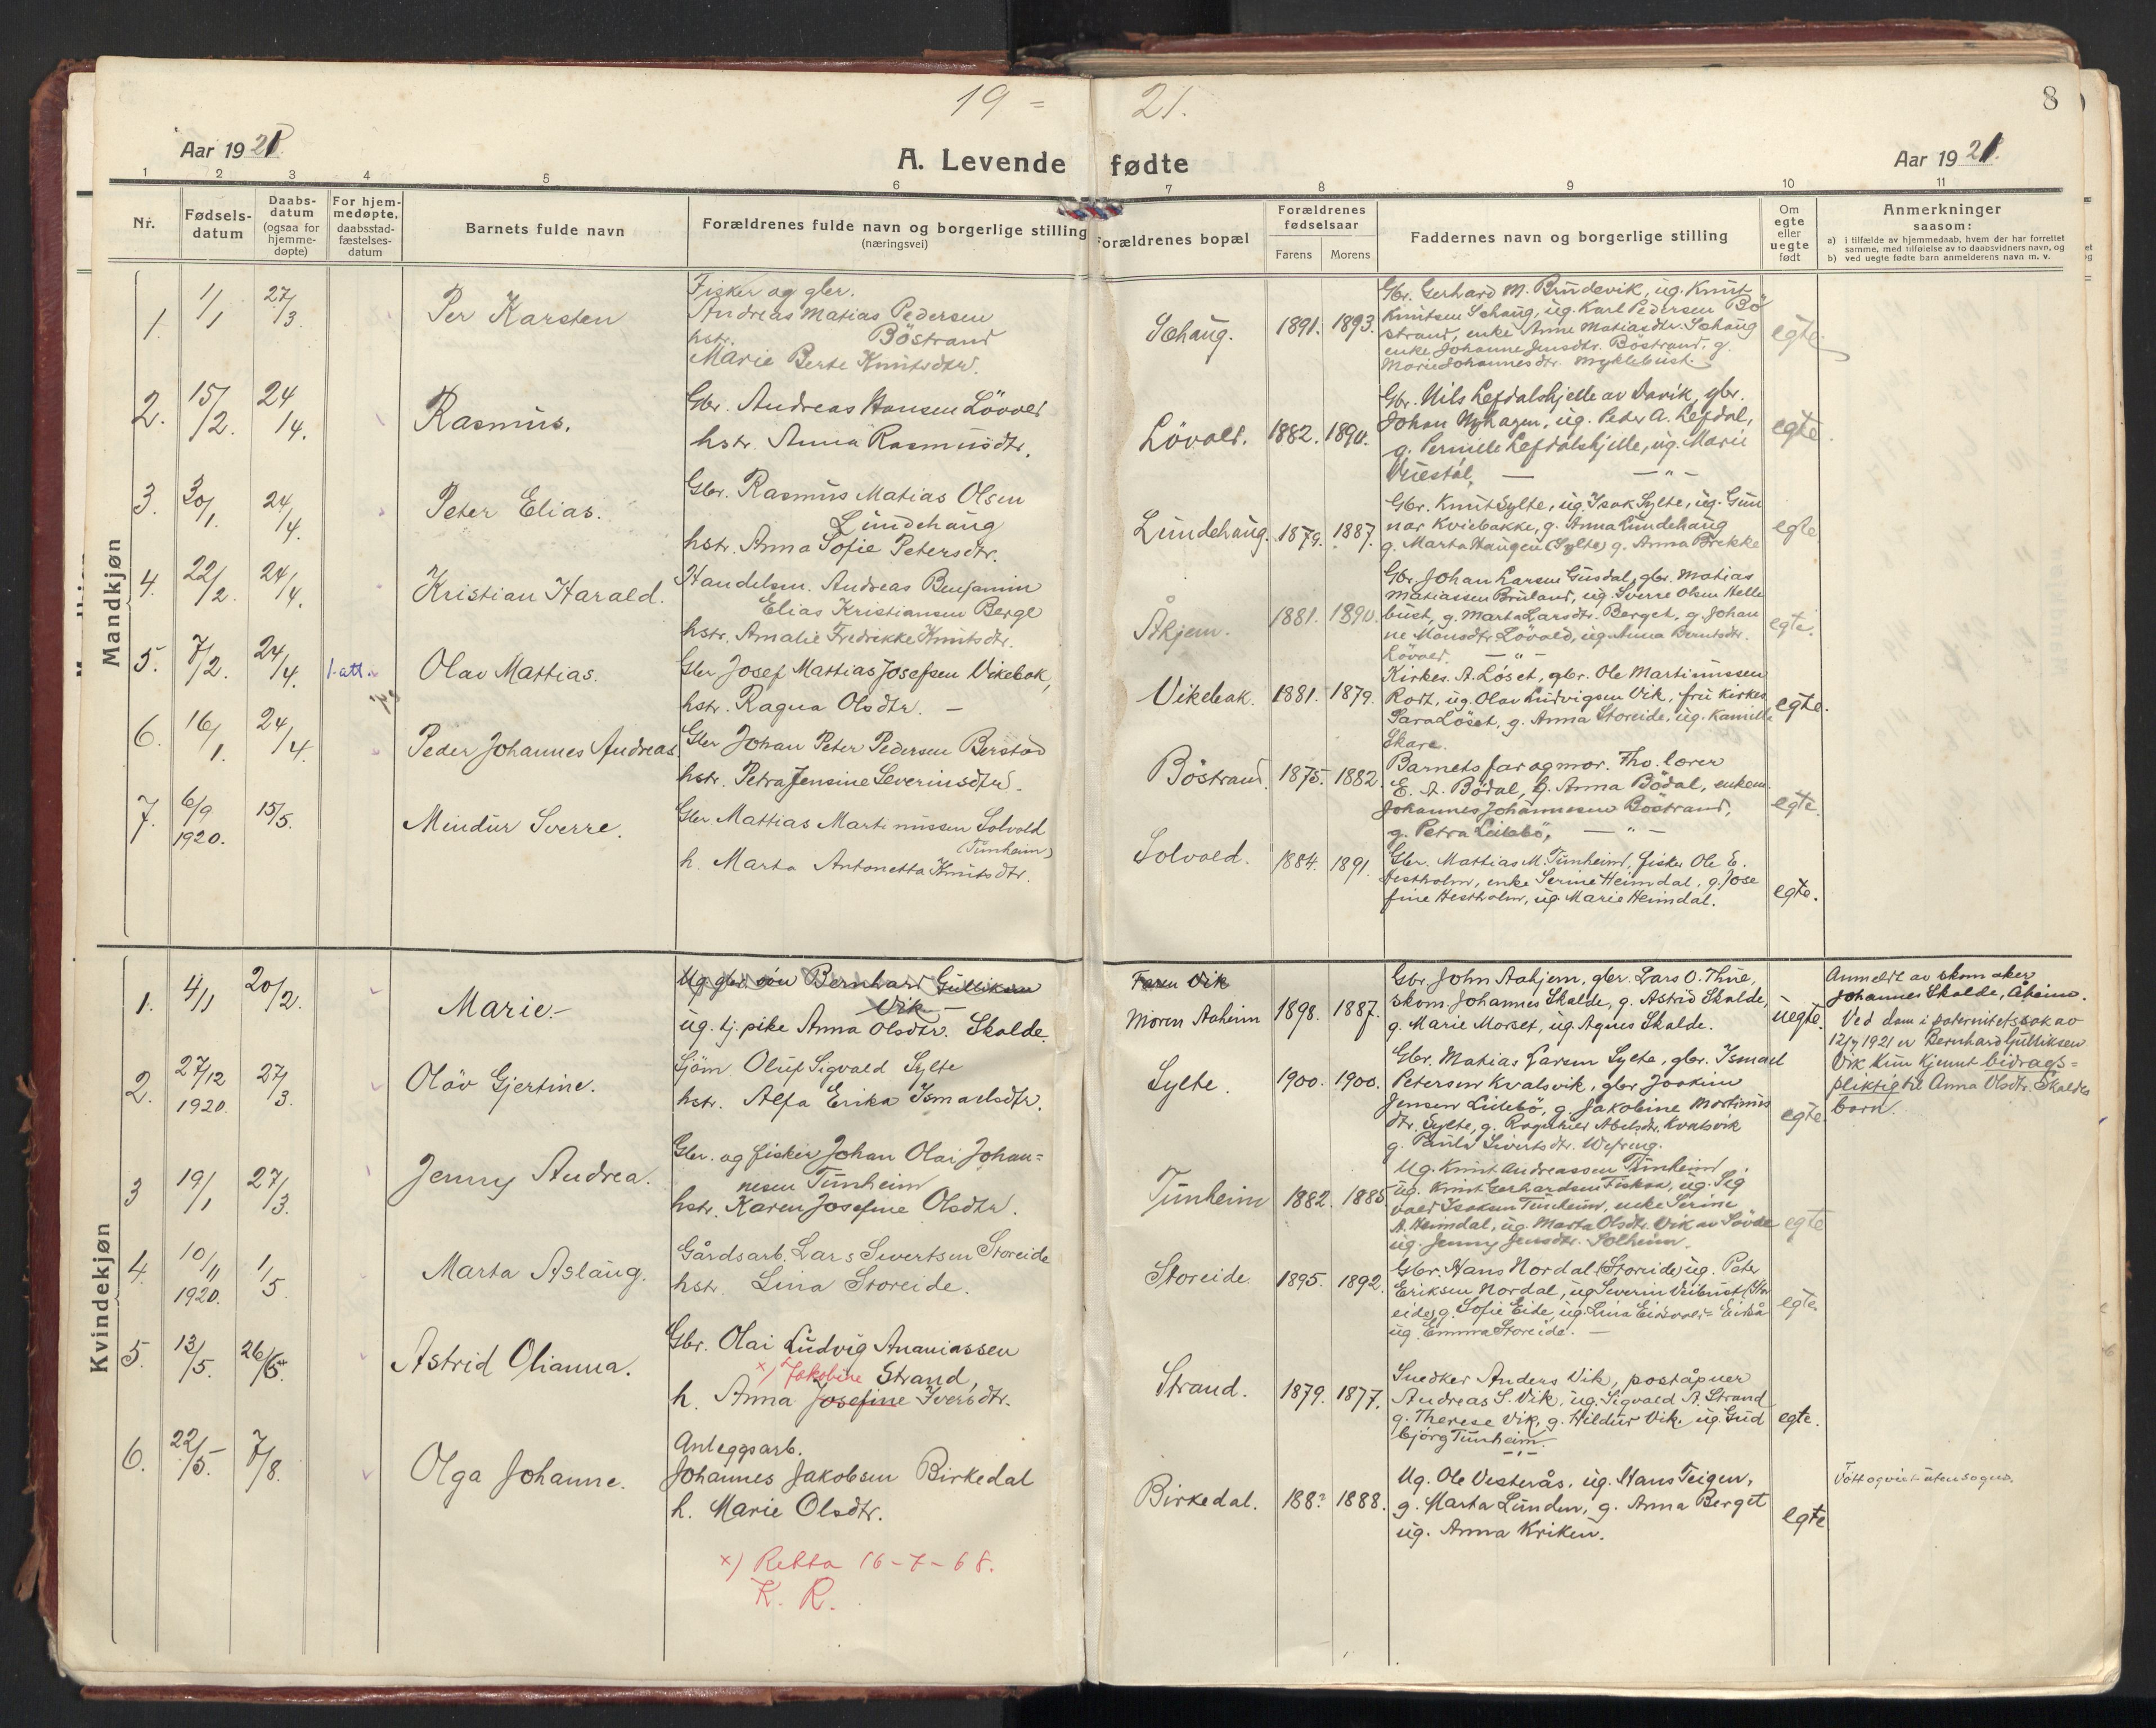 19 = 21.
8
Aar 1921.
A. Levende fødte
Aar 1921.
1 2 3 4 5 6 7 8 9 10 11
Nr.
Fødsels-
datum
Daabs-
datum
(ogsaa for
hjemme-
døpte)
For hjem-
medøpte,
daabsstad-
fæstelses-
datum
Barnets fulde navn
Forældrenes fulde navn og borgerlige stilling
(næringsvei)
Forældrenes bopæl
Forældrenes
fødselsaar
Farens Morens
Faddernes navn og borgerlige stilling
Om
egte
eller
uegte
født
Anmerkninger
saasom:
a) i tilfælde av hjemmedaab, hvem der har forrettet
samme, med tilføielse av to daabsvidners navn, og
b) ved uegte fødte barn anmelderens navn m. v.
Mandkjøn
1. 1/1 27/3. Per Karsten
Fisker og gbr.
Andreas Matias Pedersen
hstr. Böstrand
Marie Berte Knutsdtr.
1891. 1893.
Gbr. Gerhard M. Brudevik, ug. Knut
Knutsen Sehaug, ug. Karl Pedersen Bö
strand, enke Anne Matiasdtr. Sehaug
enke Johanne Jensdtr. Böstrand, g.
Marie Johannesdtr. Myklebust
egte.
2. 15/2. 24/4. Rasmus.
Gbr. Andreas Hansen Lövold
hstr. Anna Rasmusdtr.
Lövold. 1882. 1890.
Gbr. Nils Lefdalshjelle av Davik, gbr.
Johan Myhagen, ug. Peter A. Lefdal,
g. Pernille Lefdalshjelle, ug. Marie
— " —
egte.
3. 30/1. 24/4. Peter Elias.
Gbr. Rasmus Matias Olsen
Lundehaug
hstr. Anna Sofie Petersdtr.
Lundehaug. 1879. 1887.
Gbr. Knut Sylte, ug. Isak Sylte, ug. Gun
nar Kviebakke, g. Anna Lundehaug
g. Marta Haugen (Sylte) g. Anna Brekke
egte
4. 22/2. 24/4. Kristian Harald.
Handelsm. Andreas Benjamin
Elias Kristiansen Berge
hstr. Amalie Fredrikke Knutsdtr.
Åhjem. 1881. 1890.
Gbr. Johan Larsen Gusdal, gbr. Matias
Matiassen Bruland, ug. Sverre Olsen Helle
bust, g. Marta Larsdtr. Berget, g. Johan
ne Monsdtr. Lövold, ug. Anna Berntsdtr.
Lövold. — " —
egte.
5. 7/2. 24/4. 1. att. Olav Mattias.
Gbr Josef Mattias Josefsen Vikebak,
hstr. Ragna Olsdtr. —
Vikebak. 1881. 1879.
Kirkes. A. Løset, gbr. Ole Martinussen
Rodt, ug. Olav Ludvigsen Vik, fru Kirkes
Sara Löset, g. Anna Storeide, ug. Kamille
Skare.
egte.
6. 16/1. 24/4. Peder Johannes Andreas
Gbr Johan Peter Pedersen Berstad
hstr. Petra Jensine Severinsdtr.
Böstrand. 1875. 1882.
Barnets far og mor. Fho. lærer
E. A. Bödal, g. Anna Bödal, enkem.
Johannes Johannesen Böstrand,
g. Petra Lillebö, — " —
egte.
7. 6/9 1920. 15/5. Mindur Sverre.
Gbr Mattias Martinussen Solvold
(Tunheim)
h. Marta Antonetta Knutsdtr.
Solvold. 1884. 1891.
Gbr. Mattias M. Tunheim, fisker Ole E.
Hestholm, enke Serine Heimdal, g. Jose
fine Hestholm, ug. Marie Heimdal.
egte.
Kvindekjøn
1. 4/1 20/2. Marie.-
Ug. gbr. søn Bernhard Gulliksen
Vik —
ug. tj. pike Anna Olsdtr. Skalde.
Faren Vik
Moren Aaheim 1898. 1887.
Gbr John Aahjem, gbr. Lars O. Thue,
skom. Johannes Skalde, g. Astrid Skalde,
g. Marie Morset, ug. Agnes Skalde.
uegte.
Anmeldt av skomaker
Johannes Skalde, Åheim.
Ved dom i paternitetssak av
12/7 1921 er Bernhard Gulliksen
Vik kun kjennt bidrags=
pliktig til Anna Olsdtr. Skaldes
barn.
2. 27/12 1920. 27/3. Olöv Gjertine.
Sjöm. Oluf Sigvald Sylte
hstr. Alfa Erika Ismaelsdtr.
Sylte. 1900. 1900.
Gbr. Matias Larsen Sylte, gbr. Ismael
Petersen Kvalsvik, gbr Joakim
Jensen Lillebö, g. Jakobine Martinus
dtr. Sylte, g. Ragnhild Abelsdtr. Kvalsvik
g. Paula Sivertsdtr. Wefring.
egte.
3 19/1 27/3. Jenny Andrea.
Gbr. og fisker Johan Olai Johan=
nesen Tunheim
hstr. Karen Josefine Olsdtr.
Tunheim 1882. 1885
Ug. Knut Andreassen Tunheim,
ug. Knut Gerhardsen Fiskaa, ug. Sig
vald Isaksen Tunheim, enke Serine
A. Heimdal, ug. Marta Olsdtr. Vik av Sövde
ug. Jenny Jensdtr. Solheim.
egte
4. 10/11 1920. 1/5. Marta Aslaug.
Gårdsarb. Lars Sivertsen Storeide
hstr. Lina Storeide.
Storeide. 1895. 1892.
Gbr. Hans Nordal (Storeide) ug. Peter
Eriksen Nordal, ug Severin (Stor
eide) g. Sofie Eide, ug. Lina
ug. Emma Storeide. —
egte.
5. 13/5. 26/6. Astrid Olianna.
Gbr. Olai Ludvig Ananiassen
x) Jakobine Strand,
h. Anna Josefine Iversdtr.
Strand. 1879. 1877.
Snedker Anders Vik, poståpner
Andreas S. Vik, ug. Sigvald A. Strand
g. Therese Vik, g. Hildur Vik, ug. Gud
björg Tunheim.
egte.
6. 22/5. 7/8. Olga Johanne.
Anleggsarb.
Johannes Jakobsen Birkedal
h. Marie Olsdtr.
Birkedal. 1888.
Ug. Ole Vesterås, ug. Hans Teigen,
g. Marta Lunden, g. Anna Berget
ug. Anna Kriken.
egte
x) Retta 16-7-68.
K. R.